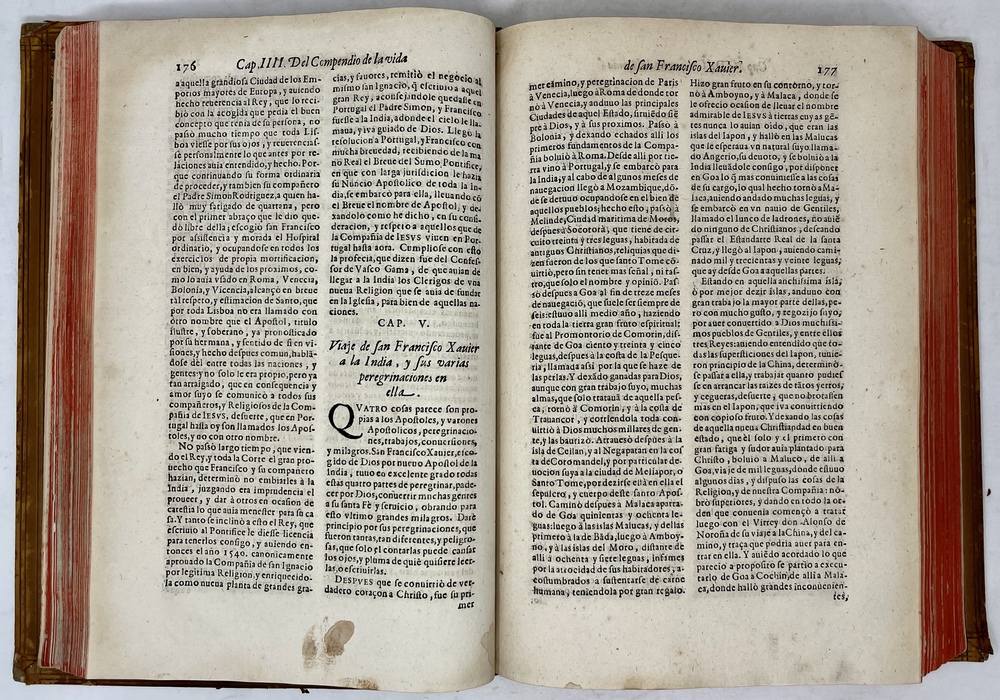 176 Cap. IIII. Del Compendio de la vida
a aquella grandiosa Ciudad de los Em-
porios mayores de Europa, y auiendo
hecho reuerencia al Rey, que lo reci-
biò con la acogida que pedia el buen
concepto que tenia de su persona, no
passò mucho tiempo que toda Lis-
boa viesse por sus ojos, y reuerencias-
se personalmente lo que antes por re-
laciones auia entendido, y hecho. Por-
que continuando su forma ordinaria
de proceder, y tambien su compañero
el Padre Simon Rodriguez, a quien ha-
llò muy fatigado de quartana, pero
con el primer abraço que le dio que-
dò libre della; escogiò san Francisco
por assistencia y morada el Hospital
ordinario, y ocupandose en todos los
exercicios de propia mortificacion,
en bien, y ayuda de los proximos, co-
mo lo auia vsado en Roma, Venecia,
Bolonia, y Vicencia, alcançò en breue
tal respeto, y estimacion de Santo, que
por toda Lisboa no era llamado con
otro nombre que el Apostol, titulo
ilustre, y soberano, ya pronosticado
por su hermana, y sentido de si en vi-
siones, y hecho despues comun, hablã-
dose dèl entre todas las naciones, y
gentes: y no solo le era propio, pero ya
tan arraigado, que en consequencia y
amor suyo se comunicò a todos sus
compañeros, y Religiosos de la Com-
pañia de IESVS, desuerte, que en Por-
tugal hasta oy son llamados los Apos-
toles, y no con otro nombre.
No passò largo tiempo, que vien-
do el Rey, y toda la Corte el gran pro-
uecho que Francisco y su compañero
hazian, determinò no embiarles à la
India, juzgando era imprudencia el
proueer, y dar à otros en ocasion de
carestia lo que auia menester para su ca
sa. Y tanto se inclinò a esto el Rey, que
escriuio al Pontifice le diesse licencia
para tenerlos consigo, y auiendo en-
tonces el año 1540. canonicamente
aprouado la Compañia de san Ignacio
por legitima Religion, y enriquecido-
la como nueva planta de grandes gra-
cias, y fauores, remitiò el negocio al
mismo san Ignacio, q̃ escriuio a aquel
gran Rey, aconsejandole quedasse en
Portugal el Padre Simon, y Francisco
fuesse a la India, adonde el cielo le lla-
maua, y iva guiado de Dios. Llegò la
resolucion a Portugal, y Francisco con
mucha breuedad, recibiendo de la ma
no Real el Breue del Sumo Pontifice,
en que con larga jurisdicion le hazia
su Nuncio Apostolico de toda la In-
dia, se embarcò para ella, lleuando cõ
el Breue el nombre de Apostol, y de-
xandolo como he dicho, en su consi-
deracion, y respeto a aquellos que de
la Compañia de IESVS viuen en Por-
tugal hasta aora. Cumpliose con esto
la profecia, que dizen fue del Confes-
sor de Vasco Gama, de que auian de
llegar a la India los Clerigos de vna
nueua Religion que se auia de fundar
en la Iglesia, para bien de aquellas na-
ciones.
CAP. V.
Viaje de san Francisco Xauier
a la India, y sus varias
peregrinaciones en
ella.
QVATRO cosas parece son pro-
pias a los Apostoles, y varones
Apostolicos, peregrinacio-
nes, trabajos, conuersiones,
y milagros. San Francisco Xauier, esco-
gido de Dios por nueuo Apostol de la
India, tuuo en excelente grado todas
estas quatro partes de peregrinar, pade-
cer por Dios, conuertir muchas gentes
a su santa Fè y seruicio, obrando para
esto vltimo grandes milagros. Darè
principio por sus peregrinaciones, que
fueron tantas, tan diferentes, y peligro-
sas, que solo el contarlas puede cansar
los ojos, y pluma de quiè quisiere leer-
las, o escriuirlas.
DESPVES que se conuirtiò de ver-
dadero coraçon a Christo, fue su pri-
mer
de san Francisco Xauier. 177
mer camino, y peregrinacion de Paris
à Venecia, luego a Roma de donde tor
nò a Venecia, y anduuo las principales
Ciudades de aquel Estado, siruiẽdo siẽ
pre à Dios, y à sus proximos. Passò à
Bolonia, y dexando echados alli los
primeros fundamentos de la Compa-
ñia boluiò a Roma. Desde alli por tie-
rra vino à Portugal, y se embarcò para
la India, y al cabo de algunos meses de
nauegacion llegò a Mozambique, dõ-
de se detuuo ocupandose en el bien de
aquellos pueblos; hecho esto, passò a
Melinde, Ciudad maritima de Moros,
despues à Socotorà, que tiene de cir-
cuito treinta y tres leguas, habitada de
antiguos Christianos, reliquias que di-
zen fueron de los que santo Tome cõ-
uirtiò, pero sin tener mas señal, ni ras-
tro, que solo el nombre y opiniõ. Pas-
sò despues a Goa al fin de treze meses
de nauegaciõ, que suele ser siempre de
seis: estuuo alli medio año, haziendo
en toda la tierra gran fruto espiritual:
fue al Promontorio de Comorin, dis-
tante de Goa ciento y treinta y cinco
leguas, despues à la costa de la Pesque-
ria, llamada assi por la que se haze de
las perlas. Y dexãdo ganadas para Dios,
aunque con gran trabajo suyo, muchas
almas, que solo trataua de aquella pes-
ca, tornò a Comorin, y à la costa de
Trauancor, y corriendola toda con-
uirtiò a Dios muchos millares de gen-
te, y las bautizò. Atrauesò despues à la
isla de Ceilan, y al Negapatan en la cos
ta de Coromandel, y por particular de-
uocion suya a la ciudad de Meliapor, o
Santo Tome, por dezirse està en ella el
sepulcro, y cuerpo deste santo Apos-
tol. Caminò despues a Malaca aparta-
do de Goa quinientas y ochenta le-
guas: luego à las islas Malucas, y dellas
primero à la de Bãda, luego a Amboy-
no, y à las islas del Moro, distante de
alli a ochenta y siete leguas, infames
por la atrocidad de sus habitadores, a-
costumbrados a sustentarse de carne
humana, teniendola por gran regalo.
Hizo gran fruto en su contorno, y tor-
nò à Amboyno, y à Malaca, donde se
le ofreciò ocasion de lleuar el nombre
admirable de IESVS à tierras cuyas gẽ-
tes nunca lo auian oido, que eran las
islas del Iapon, y hallò en las Malucas
que le esperaua vn natural suyo llama-
do Angerio, su deuoto, y se boluiò a la
India lleuãdole consigo, por disponer
en Goa lo q̃ mas conuiniesse a las cosas
de su cargo, lo qual hecho tornò a Ma-
laca, auiendo andado muchas leguas, y
se embarcò en vn nauio de Gentiles,
llamado el Iunco de ladrones, no auiẽ
do ninguno de Christianos, deseando
passar el Estandarte Real de la santa
Cruz, y llegò al Iapon, auiendo cami-
nado mil y trecientas y veinte leguas,
que ay desde Goa a aquellas partes.
Estando en aquella anchissima isla,
ò por mejor dezir islas, anduuo con
gran trabajo la mayor parte dellas, pe-
ro con mucho gusto, y regozijo suyo,
por auer conuertido a Dios muchissi-
mos pueblos de Gentiles, y entre ellos
tres Reyes: auiendo entendido que to-
das las supersticiones del Iapon, tuuie-
ron principio de la China, determinò-
se passar a ella, y trabajar quanto pudies
se en arrancar las raizes de tãtos yerros,
y cegueras, desuerte, que no brotassen
mas en el Iapon, que iva conuirtiendo
con copioso fruto. Y dexando las cosas
de aquella nueua Christiandad en buen
estado, que èl solo y el primero con
gran fatiga y sudor auia plantado para
Christo, boluio a Maluco, de alli a
Goa, viaje de mil leguas, donde estuuo
algunos dias, y dispuso las cosas de la
Religion, y de nuestra Compañia: nõ-
brò superiores, y dando en todo la or-
den que conuenia començò a tratar
luego con el Virrey don Alonso de
Noroña de su viaje a la China, y del ca-
mino, y traça que podria auer para en-
trar en ella. Y auiẽdo acordado lo que
pareciò a proposito se partio a execu-
tarlo de Goa a Cochin, de alli a Mala-
ca, donde hallò grandes inconuenien-
tes,